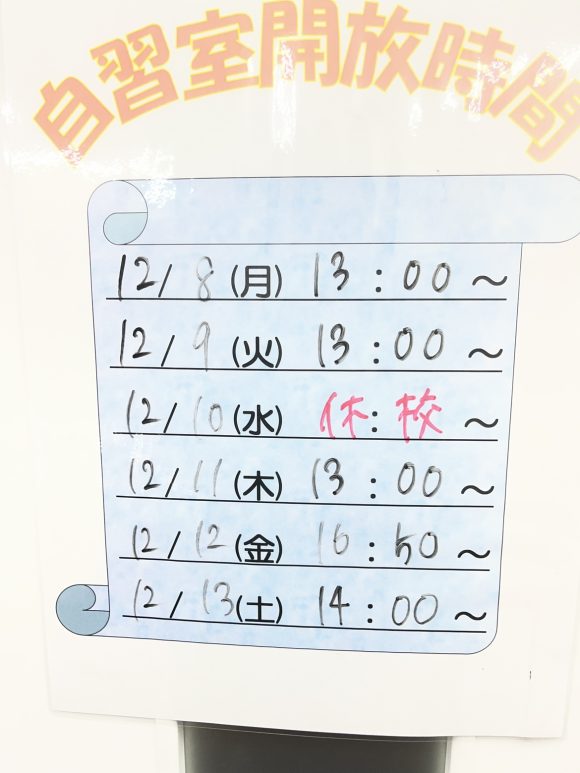 自習室開放時間
12/8(月) 13:00～
12/9(火) 13:00～
12/10(水) 休:校～
12/11(木) 13:00～
12/12(金) 16:50～
12/13(土) 14:00～